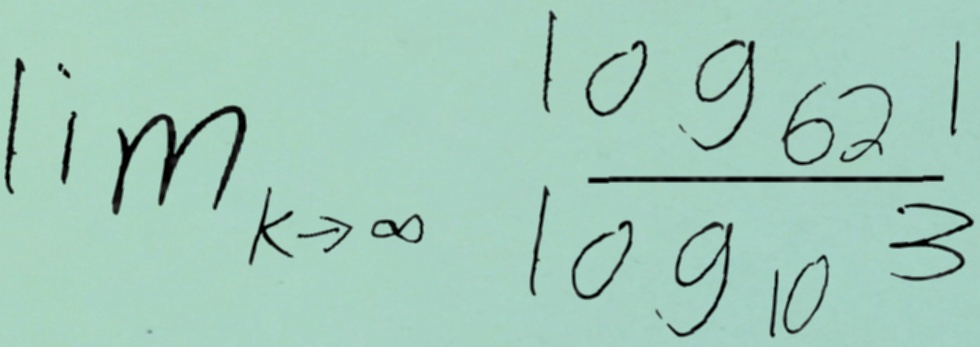 \lim_{k \to \infty} \frac{\log_{62} 1}{\log_{10} 3}